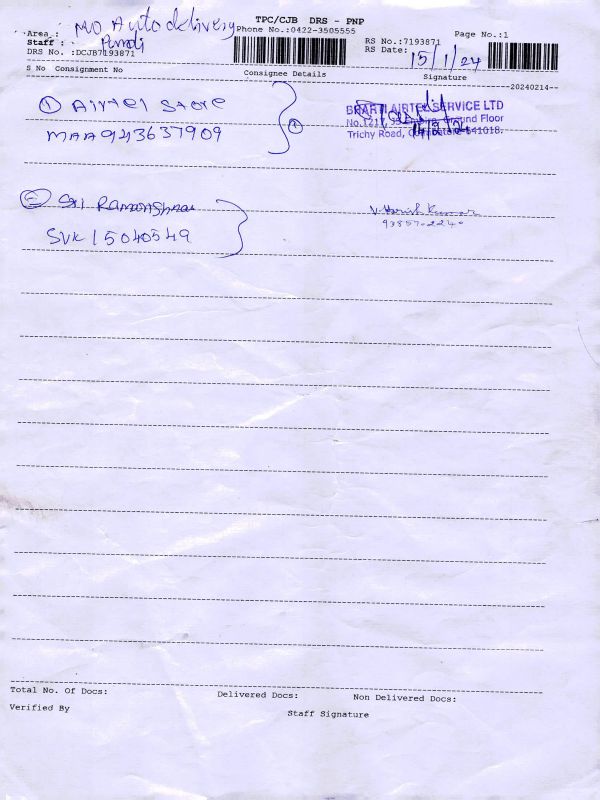 TPC/CJB DRS - PNP
Area : MO Auto delivery Phone No.:0422-3505555 Page No.:1
Staff : RS No.:7193871
DRS No. :DCJB7193871 RS Date: 15/1/24
S No Consignment No Consignee Details Signature
20240214
1 Airtel Store
MAA943637909
1
BHARTI AIRTEL SERVICE LTD
Ground Floor
Trichy Road, Coimbatore-641018.
2 Sri
SVK15040549
V. Harish Kumar
Total No. Of Docs: Delivered Docs: Non Delivered Docs:
Verified By Staff Signature